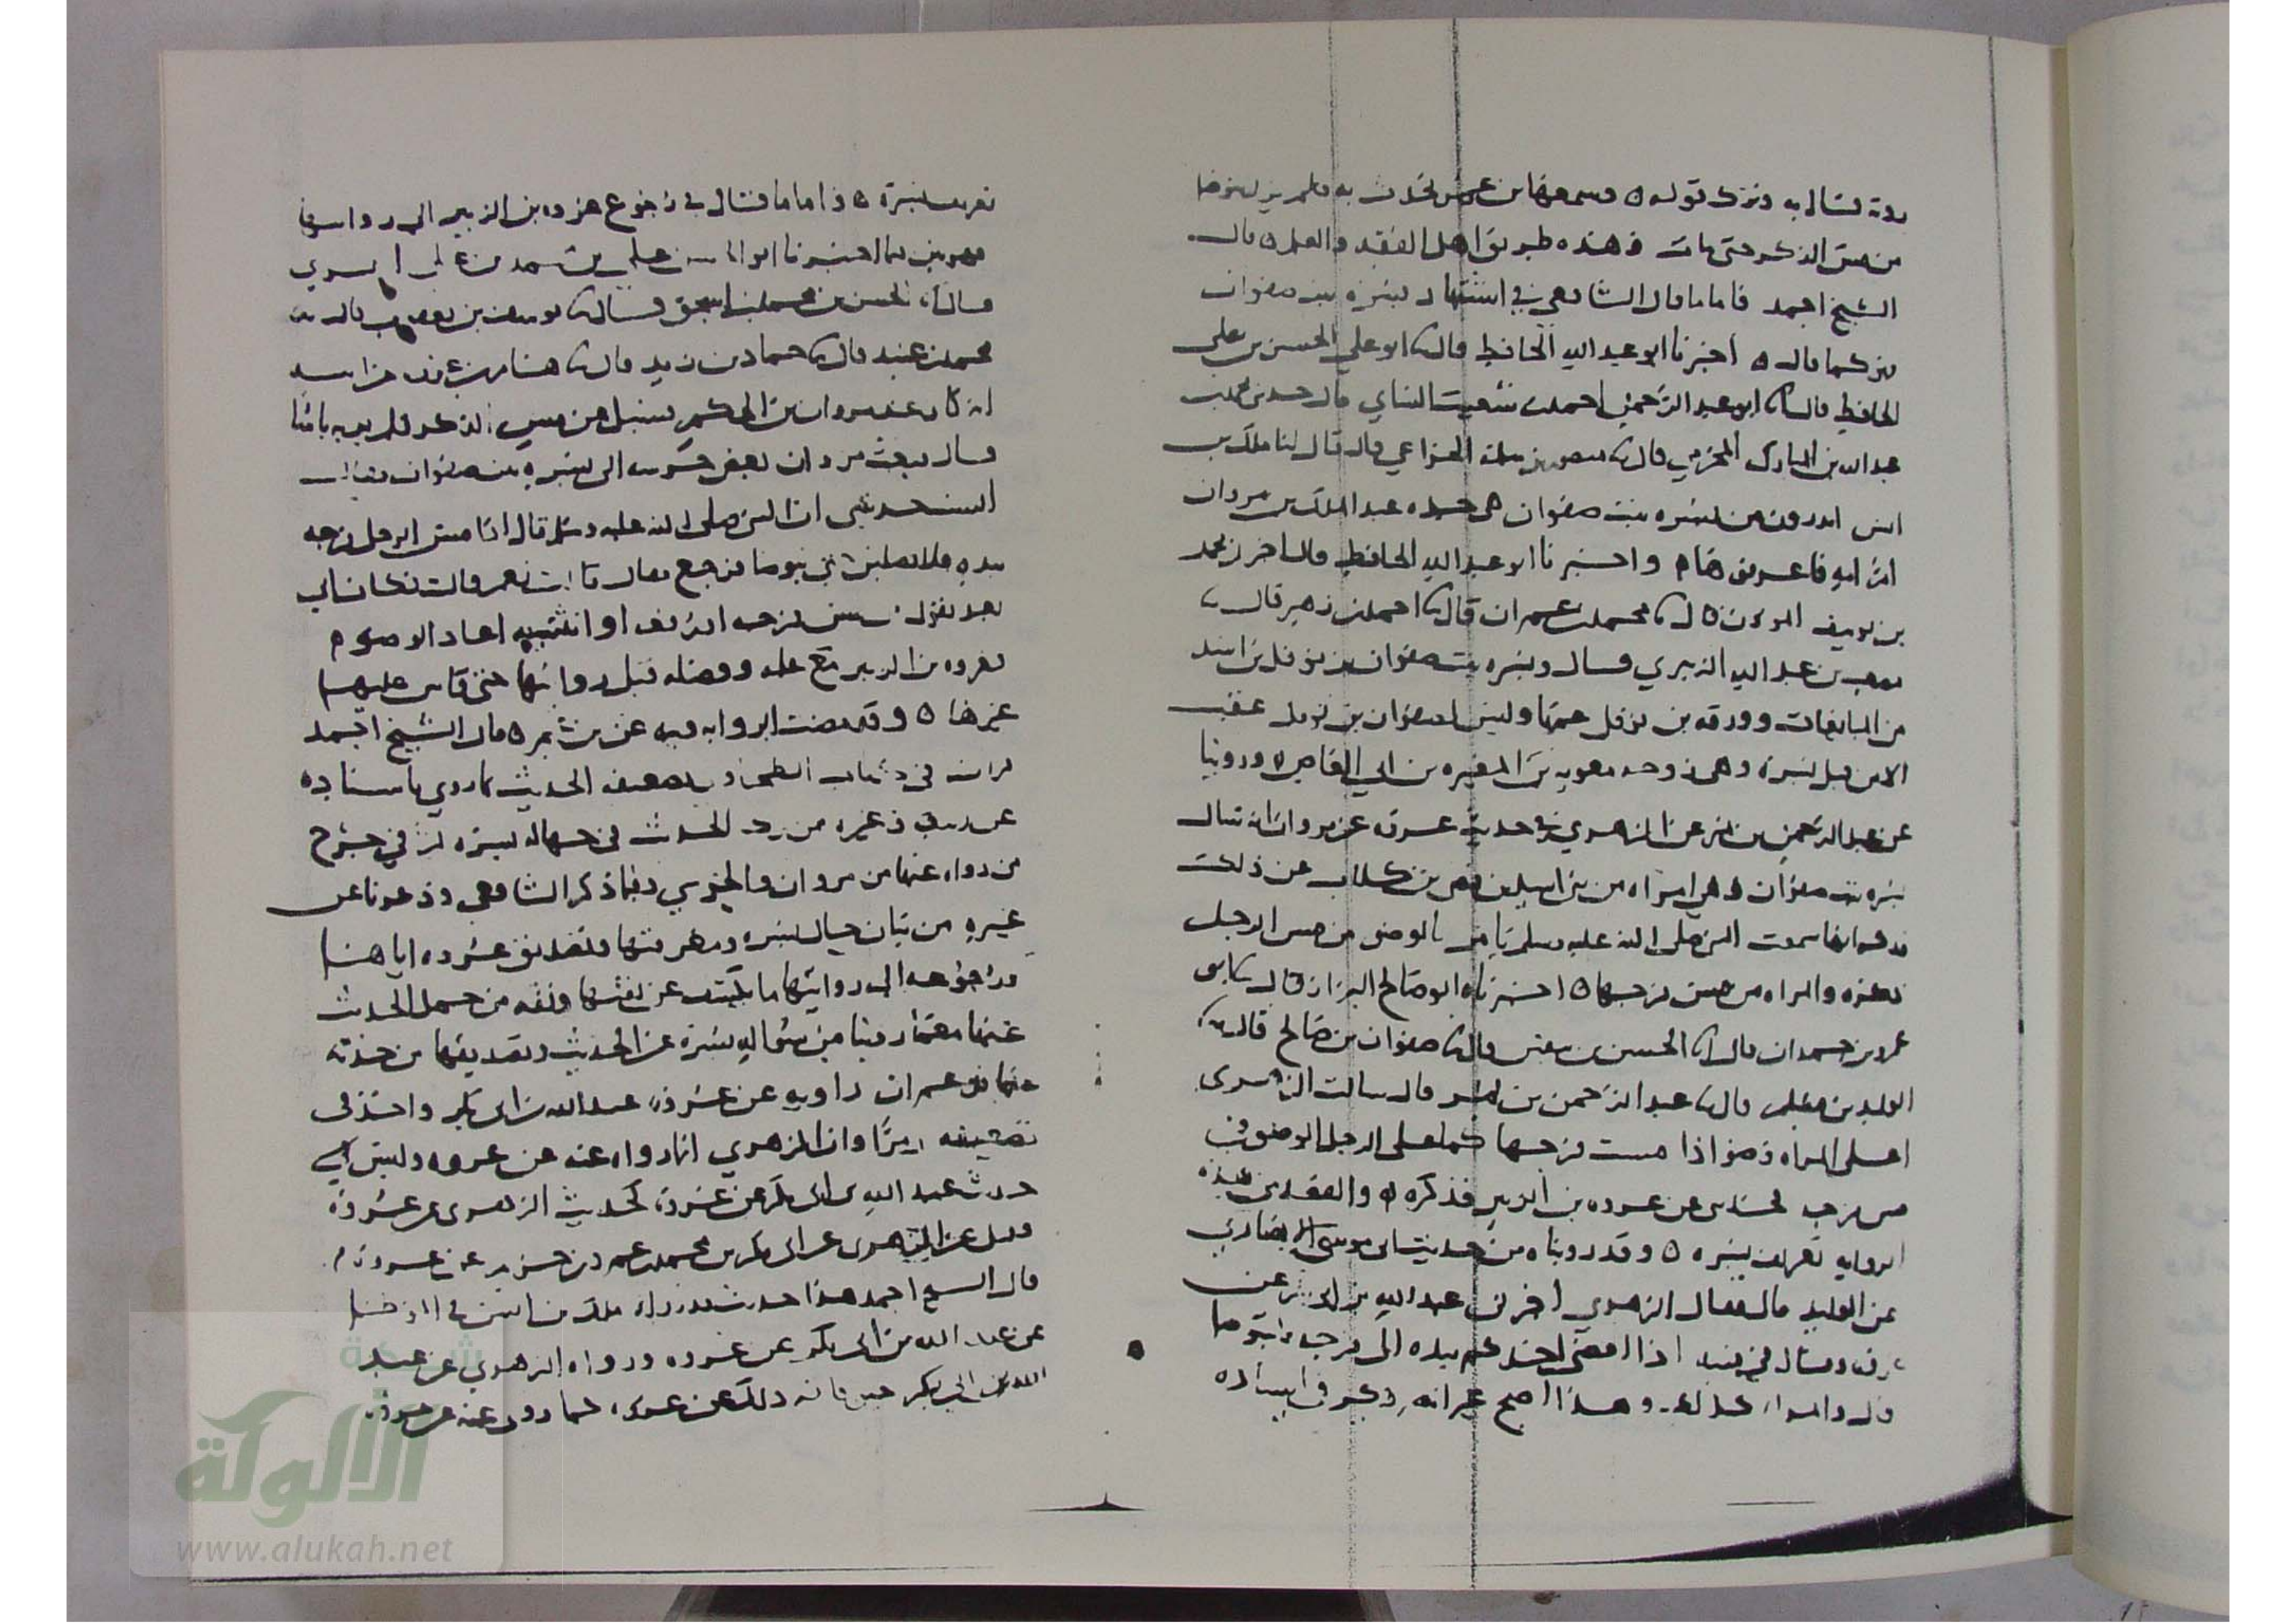 فقال به وترك قوله ٥ وسمعها ابن عمر تحدث به فلم يزل يتوضا
من مس الذكر حتى مات فهذه طريق اهل الفقه والعلم ٥ قال
الشيخ احمد فاما ما قال الشافعي في اشتهار بسرة بنت صفوان
فهو كما قال ٥ اخبرنا ابو عبد الله الحافظ قال ابو علي الحسين بن علي
الحافظ قال ابو عبد الرحمن احمد بن شعيب النساي قال محمد بن
عبد الله بن المبارك المخرمي قال منصور بن سلمة الخزاعي قال قال لنا ملك بن
انس اتدرون من بسره بنت صفوان هي جده عبد الملك بن مروان
ام امه فاعرفوها واخبرنا ابو عبد الله الحافظ قال احمد بن محمد
بن يوسف قال محمد بن عمران قال احمد بن زهير قال
مصعب بن عبد الله الزبيري قال وبسره بنت صفوان بن نوفل بن اسد
من المبايعات وورقه بن نوفل عمها وليس لصفوان بن نوفل عقب
الا من قبل بسرة وهي زوجه معويه بن المغيره بن ابي العاص ٥ وروينا
عن عبد الرحمن بن نمر عن الزهري في حديث عروة عن مروان انه قال
بسره بنت صفوان وهي امراه من بني اسد بن كلاب عن ذلك
انها سمعت النبي صلى الله عليه وسلم يامر بالوضو من مس الرجل
ذكره والمراه من مس فرجها ٥ اخبرناه ابو صالح البزاز قال
عمرو بن حمدان قال الحسن بن سفين قال صفوان بن صالح قال
الوليد بن مسلم قال عبد الرحمن بن نمر قال سالت الزهري
اعلى المراه وضو اذا مست فرجها كما على الرجل الوضو من
مس فرجه عن عروه بن الزبير فذكره ٥ والقصد من هذه
الروايه تعريف بسره ٥ وقد رويناه من حديث ابي موسى الانصاري
عن الوليد قال فقال الزهري اخبرني عبد الله بن ابي بكر عن
عروه وقال فيه اذا افضى احدكم بيده الى فرجه فليتوضا
قال والمراه كذلك وهذا اصح غير انه
تعريف بسرة ٥ واما ما قال في رجوع عروه بن الزبير الى روايتها
فهو فيما اخبرنا ابو الحسن علي بن محمد بن علي المقري
قال الحسن بن محمد بن اسحق قال يوسف بن يعقوب قال
محمد بن عبيد قال حماد بن زيد قال هشام بن عروه عن ابيه
انه كان عند مروان بن الحكم فسئل عن مس الذكر فلم ير به باسا
قال فبعث مروان بعض حرسه الى بسره بنت صفوان فقال
الست حدثتني ان النبي صلى الله عليه وسلم قال اذا مس الرجل فرجه
بيده فلا يصلين حتى يتوضا فرجع فقال قالت نعم قالت فكان ابي
بعد يقول من مس فرجه او رفغه او انثييه اعاد الوضوء
فعروه بن الزبير مع علمه وفضله قبل روايتها حتى قاس عليها
غيرها ٥ وقد مضت الروايه فيه عن ابن عمر ٥ قال الشيخ احمد
قرات في كتاب الطحاوي تضعيف الحديث بما روي باسناده
عن ربيعه وغيره من رد الحديث في جهاله بسره ثم في جرح
من رواه عنها من مروان والحرسي وفيما ذكر الشافعي وذكرنا عن
غيره من بيان حال بسره ومعرفتها وتصديق عروه اياها
ورجوعه الى روايتها ما يكشف عن ثقتها وثقه من حمل الحديث
عنها معما روينا من سواله بسرة عن الحديث وتصديقها من حدثه
عنها وزعم ان راويه عن عروة عبد الله بن ابي بكر واخذ في
تضعيفه وان الزهري انما رواه عنه عن عروه وليس
حديث عبد الله بن ابي بكر عن عروة كحديث الزهري عن عروة
وقيل عن الزهري عن ابي بكر بن محمد بن عمرو بن حزم عن عروة
قال الشيخ احمد هذا حديث قد رواه ملك بن انس في الموطا
عن عبد الله بن ابي بكر عن عروه ورواه الزهري عن عبد
الله بن ابي بكر عن عروة كما روى عنه عن عروة
الألوكة
www.alukah.net